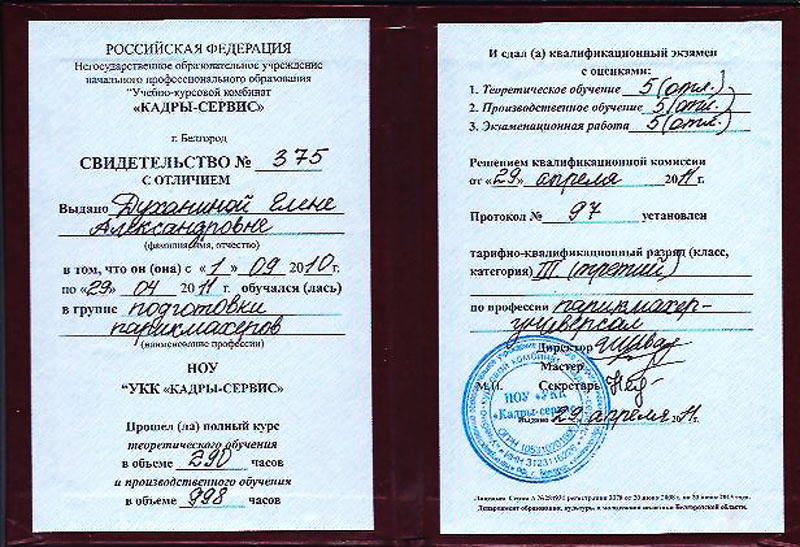 РОССИЙСКАЯ ФЕДЕРАЦИЯ
Негосударственное образовательное учреждение
начального профессионального образования
"Учебно-курсовой комбинат
«КАДРЫ-СЕРВИС»
г. Белгород
СВИДЕТЕЛЬСТВО № 375
С ОТЛИЧИЕМ
Выдано Духаниной Елене
Александровне
(фамилия, имя, отчество)
в том, что он (она) с «1» 09 2010г.
по «29» 04 2011 г. обучался (лась)
в группе подготовки
парикмахеров
(наименование профессии)
НОУ
"УКК «КАДРЫ-СЕРВИС»
Прошел (ла) полный курс
теоретического обучения
в объеме 290 часов
и производственного обучения
в объеме 998 часов
И сдал (а) квалификационный экзамен
с оценками:
1. Теоретическое обучение 5 (отл.)
2. Производственное обучение 5 (отл.)
3. Экзаменационная работа 5 (отл.)
Решением квалификационной комиссии
от «29» апреля 2011 г.
Протокол № 97 установлен
тарифно-квалификационный разряд (класс,
категория) III (третий)
по профессии парикмахер-
универсал
Директор
Мастер
М.П. Секретарь
НОУ "УКК
«Кадры-сервис»
Выдано 29 апреля 2011г.
Департамент образования, культуры и молодежной политики Белгородской области.